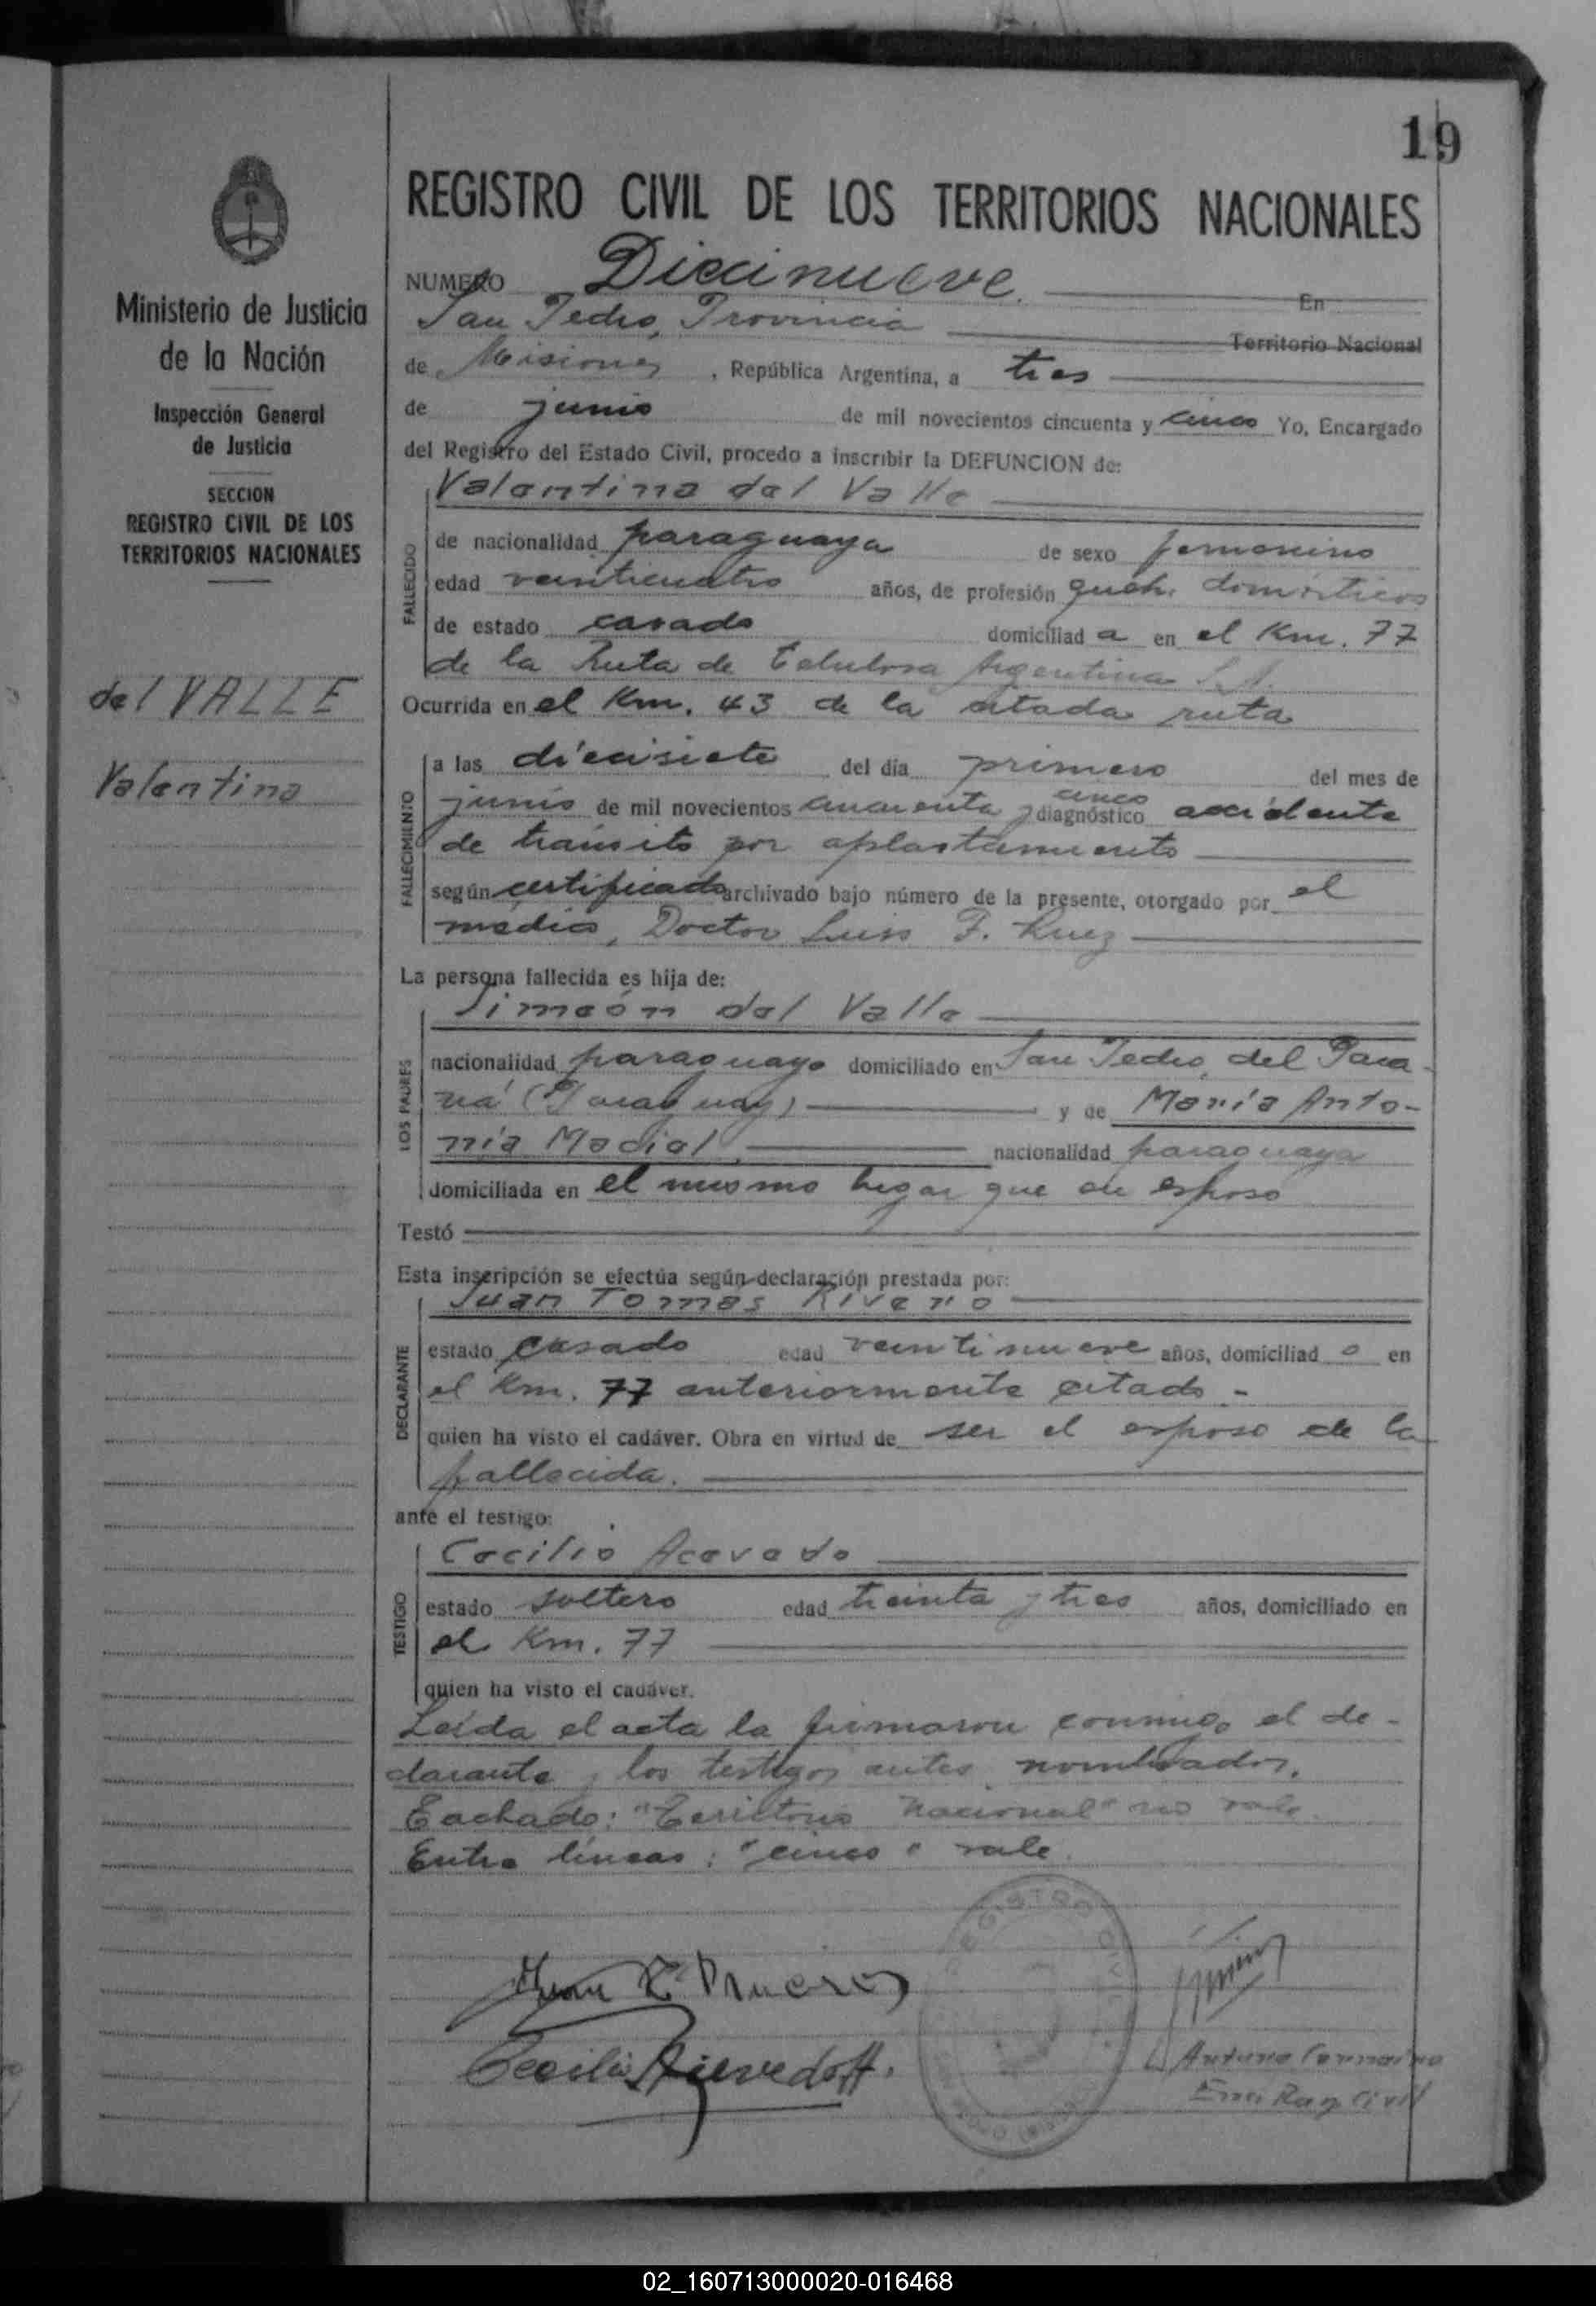 19
REGISTRO CIVIL DE LOS TERRITORIOS NACIONALES
Ministerio de Justicia
de la Nación
Inspección General
de Justicia
SECCION
REGISTRO CIVIL DE LOS
TERRITORIOS NACIONALES
del VALLE
Valentina
NUMERO Diecinueve. En
San Pedro, Provincia Territorio Nacional
de Misiones, República Argentina, a tres
de junio de mil novecientos cincuenta y cinco Yo, Encargado
del Registro del Estado Civil, procedo a inscribir la DEFUNCION de:
Valentina del Valle
FALLECIDO
de nacionalidad paraguaya de sexo femenino
edad veinticuatro años, de profesión queh. domésticos
de estado casada domiciliad a en el Km. 77
de la Ruta de Celulosa Argentina S.A.
Ocurrida en el Km. 43 de la citada ruta
FALLECIMIENTO
a las diecisiete del día primero del mes de
junio de mil novecientos cincuenta y cinco diagnóstico accidente
de tránsito por aplastamiento
según certificado archivado bajo número de la presente, otorgado por el
médico, Doctor Luis F.
La persona fallecida es hija de:
Simeón del Valle
LOS PADRES
nacionalidad paraguayo domiciliado en San Pedro del Para-
ná (Paraguay) y de María Anto-
nia Macial, nacionalidad paraguaya
domiciliada en el mismo lugar que su esposo
Testó
Esta inscripción se efectúa según declaración prestada por:
Juan Tomas Rivero
DECLARANTE
estado casado edad veintinueve años, domiciliad o en
el Km. 77 anteriormente citado -
quien ha visto el cadáver. Obra en virtud de ser el esposo de la
fallecida.
ante el testigo:
Cecilio Acevedo
TESTIGO
estado soltero edad treinta y tres años, domiciliado en
el Km. 77
quien ha visto el cadáver.
Leída el acta la firmaron conmigo el de-
clarante y los testigos antes nombrados.
Tachado: "Territorio Nacional" no vale.
Entre líneas: "cinco" vale.
REGISTRO CIVIL
Juan T. Rivero
Cecilio Acevedo
Antonio
Enc. Reg. Civil
02_160713000020-016468